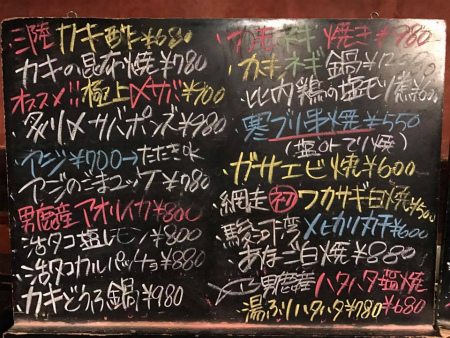 三陸カキ酢¥680
カキの昆布焼¥780
オススメ!!極上〆サバ¥700
炙り〆サバポンズ¥980
アジ¥700→たたき
アジのごまユッケ¥780
男鹿産アオリイカ¥800
活タコ塩レモン¥800
活タコカルパッチョ¥880
カキどうふ鍋¥980
ネギ焼き¥780
カキネギ鍋¥1250
比内鶏の塩モツ煮¥600
寒ブリ串焼¥550
(塩orてり焼)
ガサエビ焼¥600
網走初ワカサギ白焼¥500
駿河湾メヒカリ丸干¥600
あなご白焼¥880
男鹿産ハタハタ塩焼
湯ぶりハタハタ¥780 ¥680